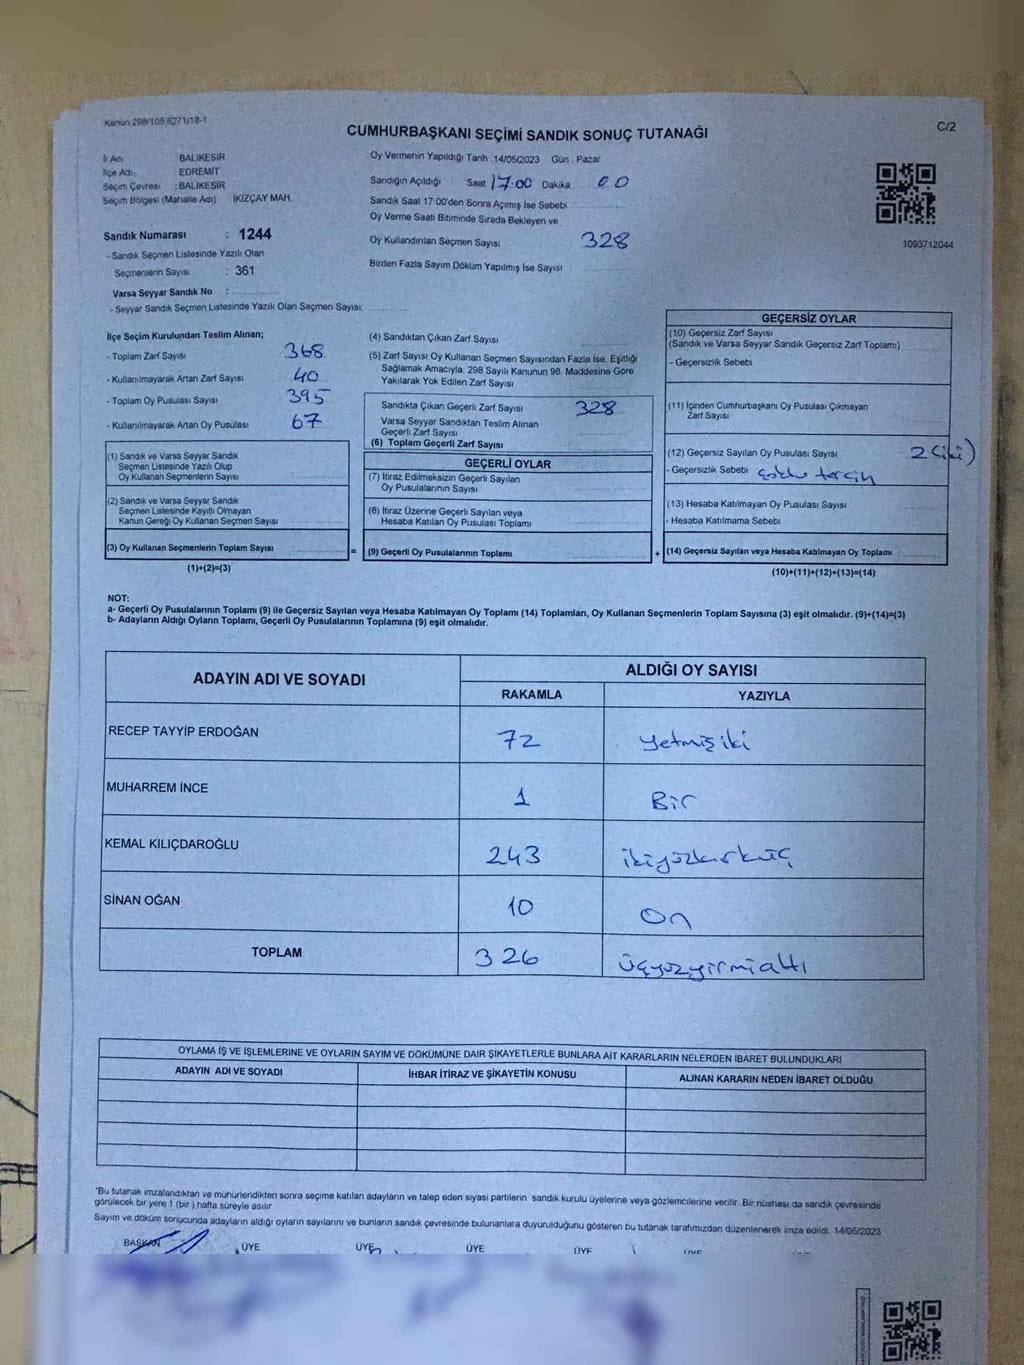 Kanun 298/105,6271/18-1
C/2
CUMHURBAŞKANI SEÇİMİ SANDIK SONUÇ TUTANAĞI
İl Adı : BALIKESİR
İlçe Adı : EDREMİT
Seçim Çevresi : BALIKESİR
Seçim Bölgesi (Mahalle Adı) İKİZÇAY MAH.
Sandık Numarası : 1244
- Sandık Seçmen Listesinde Yazılı Olan
Seçmenlerin Sayısı : 361
Varsa Seyyar Sandık No :
- Seyyar Sandık Seçmen Listesinde Yazılı Olan Seçmen Sayısı:
Oy Vermenin Yapıldığı Tarih :14/05/2023 Gün : Pazar
Sandığın Açıldığı Saat 17:00 Dakika 00
Sandık Saat 17:00'den Sonra Açımış İse Sebebi :
Oy Verme Saati Bitiminde Sırada Bekleyen ve
Oy Kullandırılan Seçmen Sayısı 328
Birden Fazla Sayım Döküm Yapılmış İse Sayısı :
1093712044
İlçe Seçim Kurulundan Teslim Alınan;
- Toplam Zarf Sayısı 368
- Kullanılmayarak Artan Zarf Sayısı 40
- Toplam Oy Pusulası Sayısı 395
- Kullanılmayarak Artan Oy Pusulası 67
(1) Sandık ve Varsa Seyyar Sandık
Seçmen Listesinde Yazılı Olup
Oy Kullanan Seçmenlerin Sayısı
(2) Sandık ve Varsa Seyyar Sandık
Seçmen Listesinde Kayıtlı Olmayan
Kanun Gereği Oy Kullanan Seçmen Sayısı
(3) Oy Kullanan Seçmenlerin Toplam Sayısı
(1)+(2)=(3)
=
(4) Sandıktan Çıkan Zarf Sayısı
(5) Zarf Sayısı Oy Kullanan Seçmen Sayısından Fazla İse, Eşitliği
Sağlamak Amacıyla, 298 Sayılı Kanunun 98. Maddesine Göre
Yakılarak Yok Edilen Zarf Sayısı
Sandıkta Çıkan Geçerli Zarf Sayısı 328
Varsa Seyyar Sandıktan Teslim Alınan
Geçerli Zarf Sayısı
(6) Toplam Geçerli Zarf Sayısı
GEÇERLİ OYLAR
(7) İtiraz Edilmeksizin Geçerli Sayılan
Oy Pusulalarının Sayısı
(8) İtiraz Üzerine Geçerli Sayılan veya
Hesaba Katılan Oy Pusulası Toplamı
(9) Geçerli Oy Pusulalarının Toplamı
+
GEÇERSİZ OYLAR
(10) Geçersiz Zarf Sayısı
(Sandık ve Varsa Seyyar Sandık Geçersiz Zarf Toplamı)
- Geçersizlik Sebebi
(11) İçinden Cumhurbaşkanı Oy Pusulası Çıkmayan
Zarf Sayısı
(12) Geçersiz Sayılan Oy Pusulası Sayısı 2 (iki)
- Geçersizlik Sebebi çoklu tercih
(13) Hesaba Katılmayan Oy Pusulası Sayısı
- Hesaba Katılmama Sebebi
(14) Geçersiz Sayılan veya Hesaba Katılmayan Oy Toplamı
(10)+(11)+(12)+(13)=(14)
NOT:
a- Geçerli Oy Pusulalarının Toplamı (9) ile Geçersiz Sayılan veya Hesaba Katılmayan Oy Toplamı (14) Toplamları, Oy Kullanan Seçmenlerin Toplam Sayısına (3) eşit olmalıdır. (9)+(14)=(3)
b- Adayların Aldığı Oyların Toplamı, Geçerli Oy Pusulalarının Toplamına (9) eşit olmalıdır.
ADAYIN ADI VE SOYADI
ALDIĞI OY SAYISI
RAKAMLA YAZIYLA
RECEP TAYYİP ERDOĞAN 72 yetmişiki
MUHARREM İNCE 1 Bir
KEMAL KILIÇDAROĞLU 243 ikiyüzkırküç
SİNAN OĞAN 10 On
TOPLAM 326 üçyüzyirmialtı
OYLAMA İŞ VE İŞLEMLERİNE VE OYLARIN SAYIM VE DÖKÜMÜNE DAİR ŞİKAYETLERLE BUNLARA AİT KARARLARIN NELERDEN İBARET BULUNDUKLARI
ADAYIN ADI VE SOYADI İHBAR İTİRAZ VE ŞİKAYETİN KONUSU ALINAN KARARIN NEDEN İBARET OLDUĞU
*Bu tutanak imzalandıktan ve mühürlendikten sonra seçime katılan adayların ve talep eden siyasi partilerin sandık kurulu üyelerine veya gözlemcilerine verilir. Bir nüshası da sandık çevresinde
görülecek bir yere 1 (bir) hafta süreyle asılır.
Sayım ve döküm sonucunda adayların aldığı oyların sayılarını ve bunların sandık çevresinde bulunanlara duyurulduğunu gösteren bu tutanak tarafımızdan düzenlenerek imza edildi. 14/05/2023
BAŞKAN ÜYE ÜYE ÜYE ÜYE ÜYE